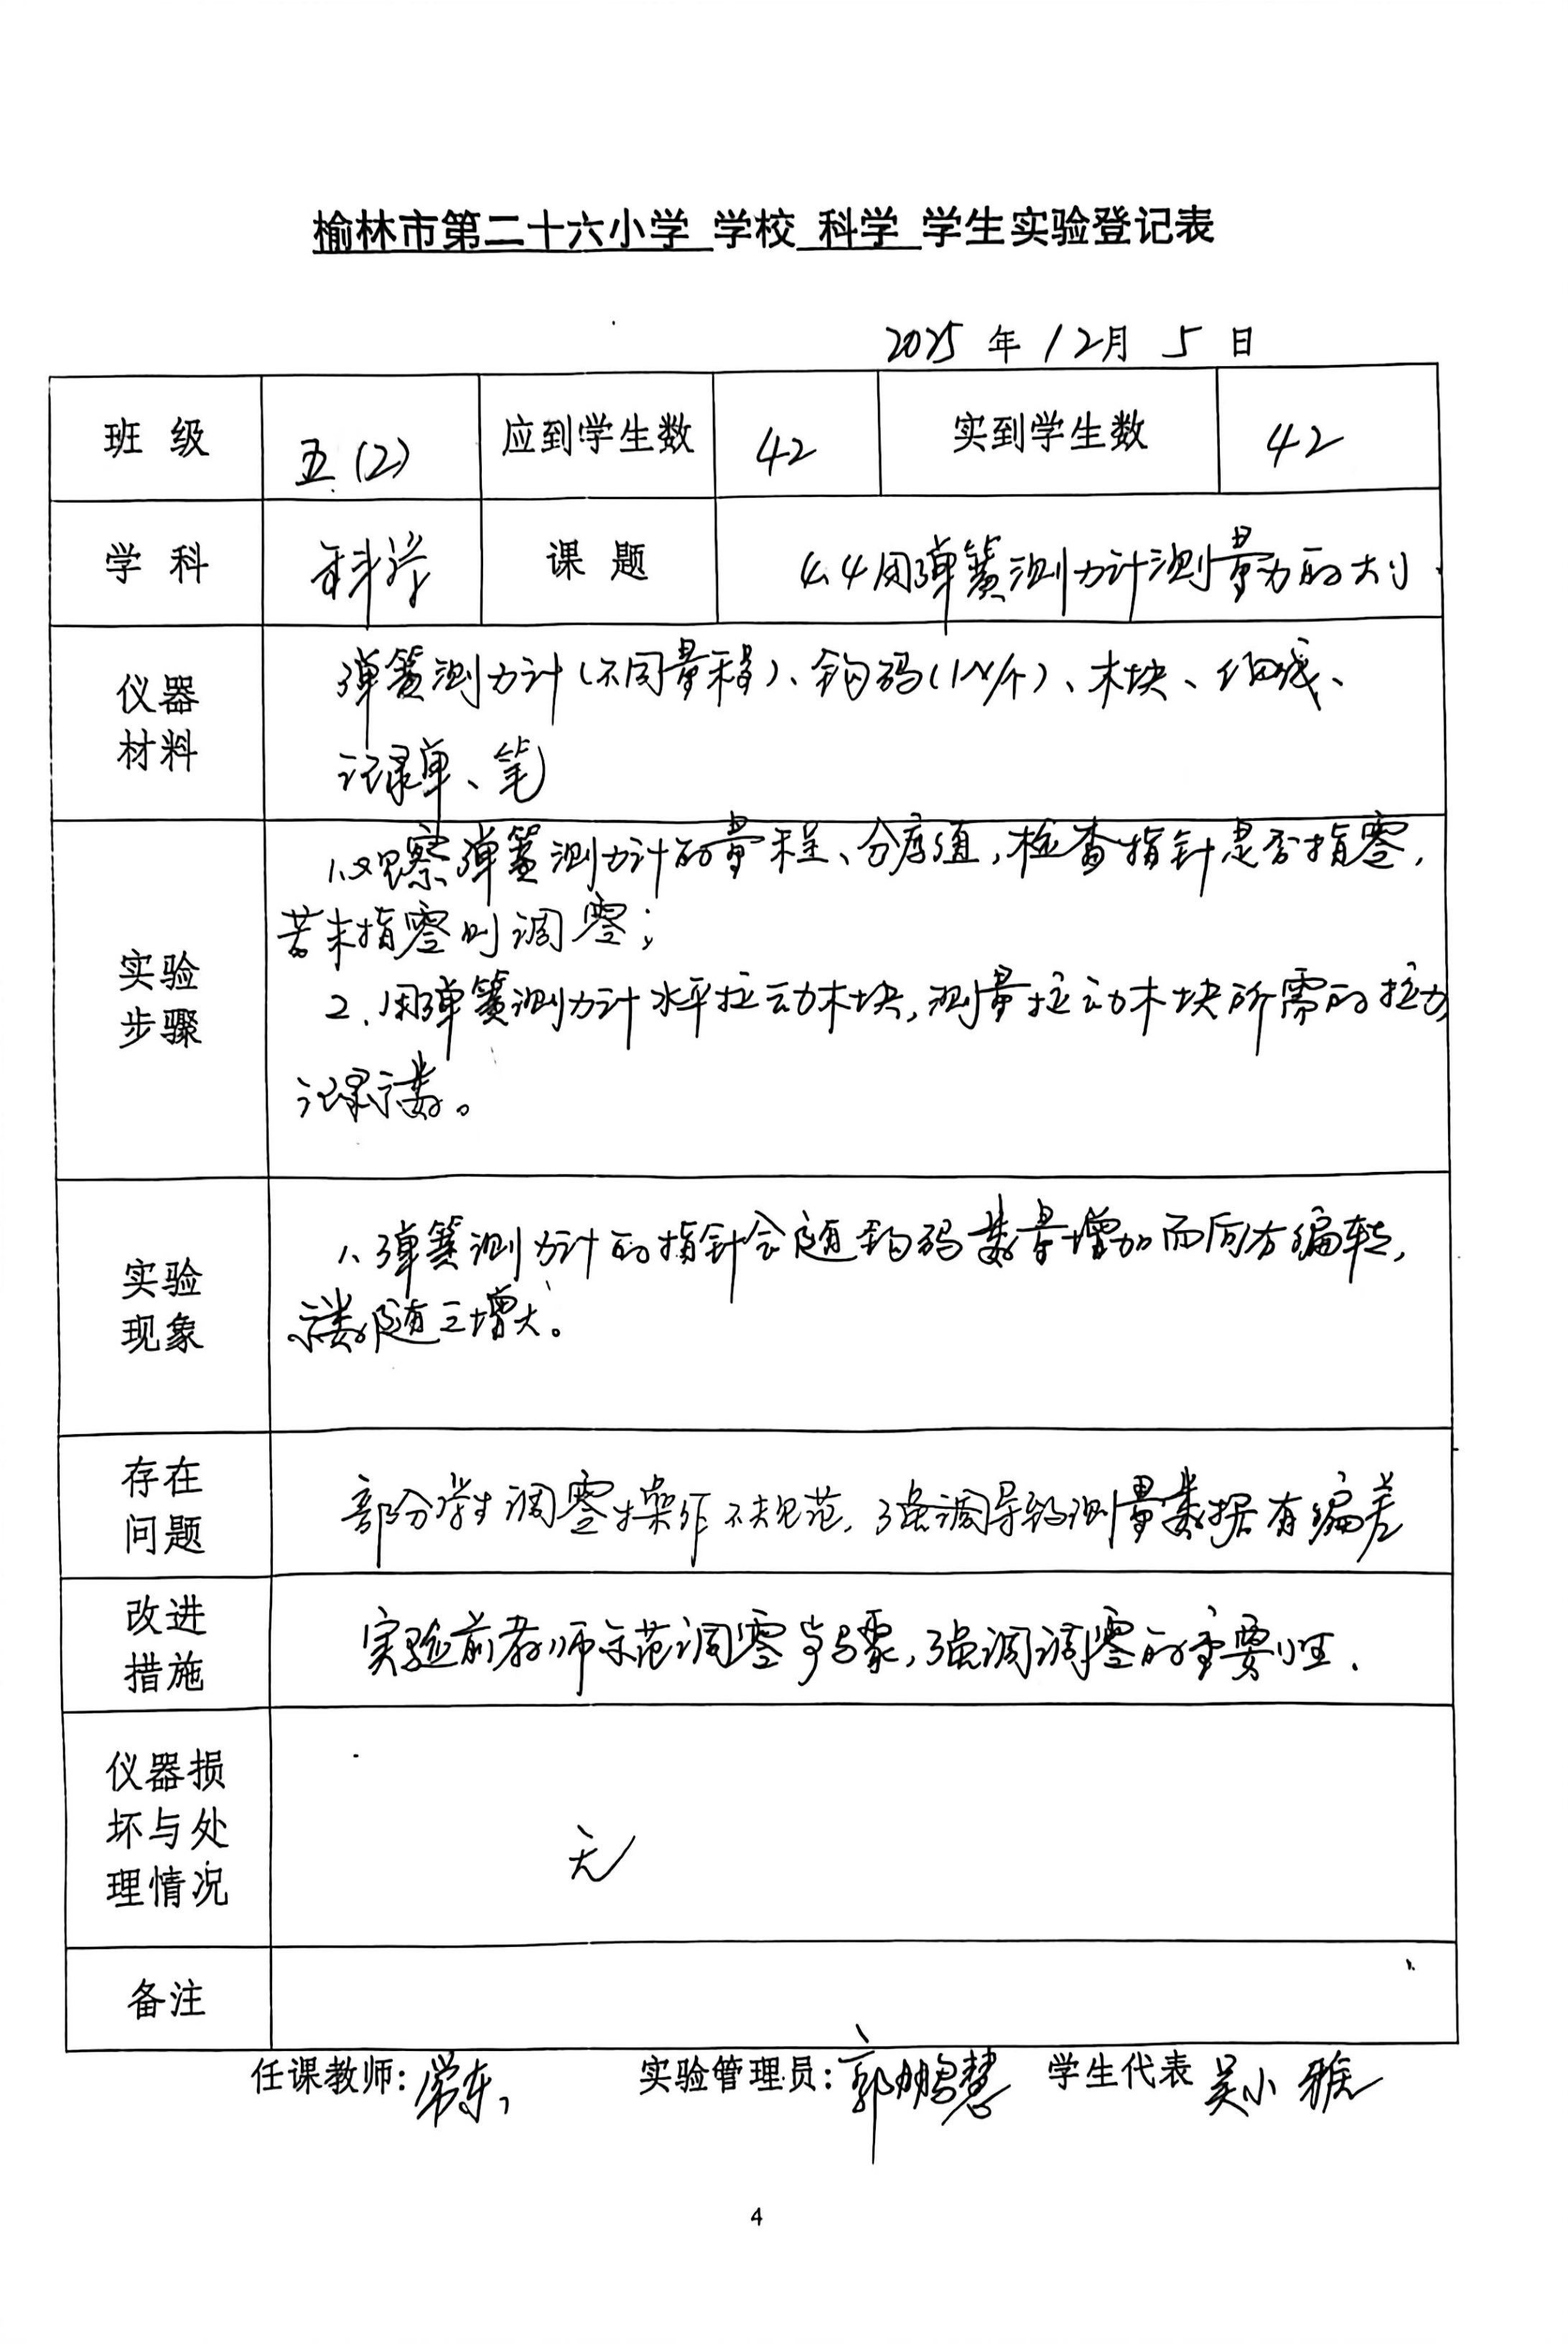 榆林市第二十六小学 学校 科学 学生实验登记表
2025 年 12月 5 日
班 级 五(2) 应到学生数 42 实到学生数 42
学 科 科学 课 题 4.4用弹簧测力计测量力的大小
仪器材料 弹簧测力计(不同量程)、钩码(1N/个)、木块、细线、
记录单、笔
实验步骤 1.观察弹簧测力计的量程、分度值,检查指针是否指零,
若未指零则调零;
2.用弹簧测力计水平拉动木块,测量拉动木块所需的拉力
记录示数。
实验现象 1、弹簧测力计的指针会随钩码数量增加而向右偏转,
示数随之增大。
存在问题 部分学生调零操作不规范,强调导致测量数据有偏差
改进措施 实验前教师示范调零步骤,强调调零的重要性.
仪器损坏与处理情况 无
备注
任课教师: 实验管理员:郭鹏慧 学生代表 吴小雅
4